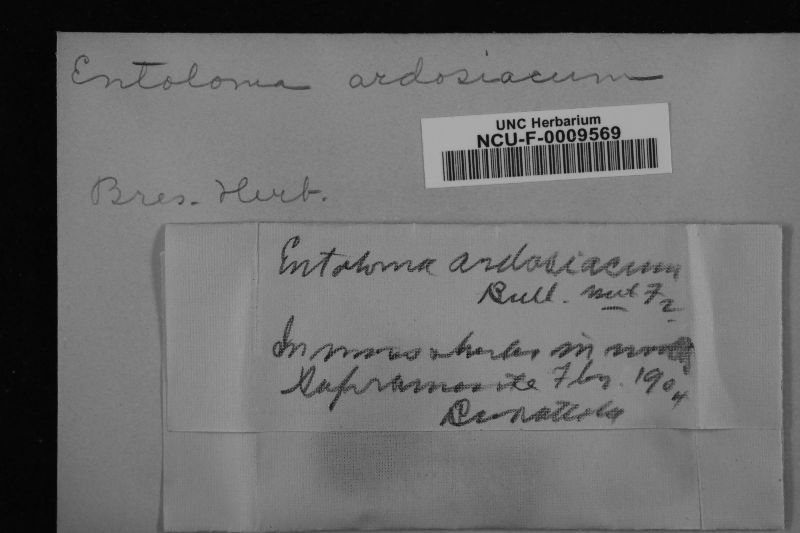 Entoloma ardosiacum
UNC Herbarium
NCU-F-0009569
Bres. Herb.
Entoloma ardosiacum
Bull. not Fr
In
Sopramonte 1904